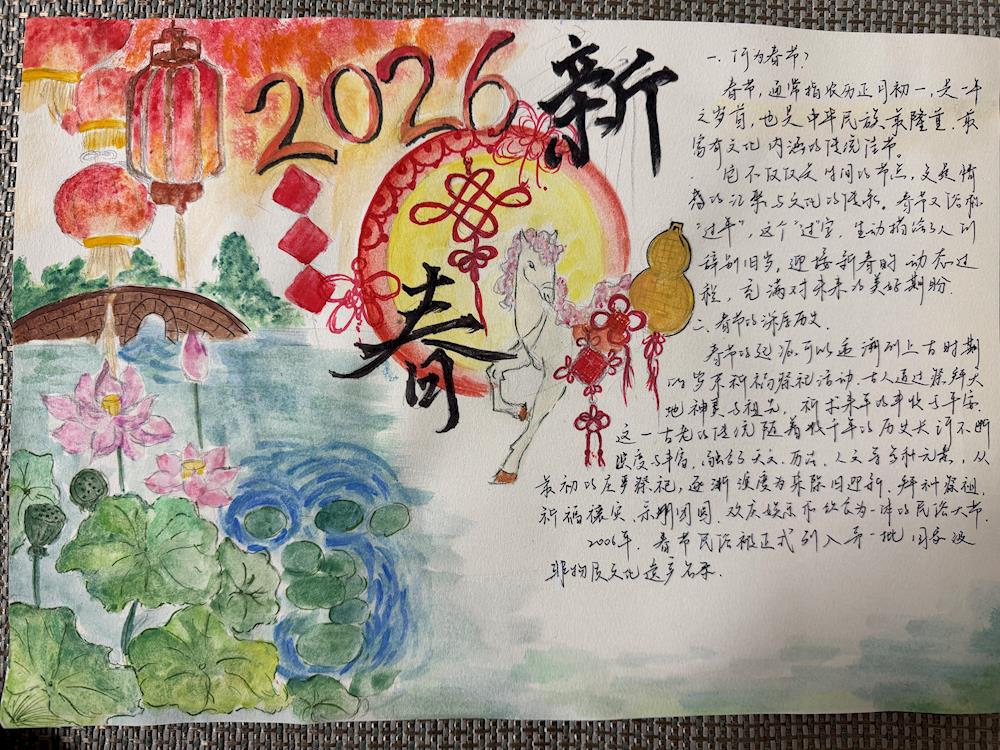 2026 新
春
一. 何为春节?
春节, 通常指农历正月初一, 是一年
之岁首, 也是中华民族最隆重、最
富有文化内涵的传统佳节。
它不仅仅是时间的节点, 更是情
感的汇聚与文化的传承。春节又俗称
"过年", 这个"过"字, 生动描绘了人们
辞别旧岁, 迎接新春时动态过
程, 充满对未来的美好期盼.
二. 春节的深厚历史.
春节的起源可以追溯到上古时期
的岁末祈福祭祀活动. 古人通过祭拜天
地神灵与祖先, 祈求来年的丰收与平安.
这一古老的传统随着数千年的历史长河不断
演变与丰富, 融合了天文、历法、人文等多种元素, 从
最初的庄严祭祀, 逐渐演变为集除旧迎新、拜神祭祖、
祈福禳灾、亲朋团圆、欢庆娱乐和饮食为一体的民俗大节.
2006年, 春节民俗被正式列入第一批国家级
非物质文化遗产名录.